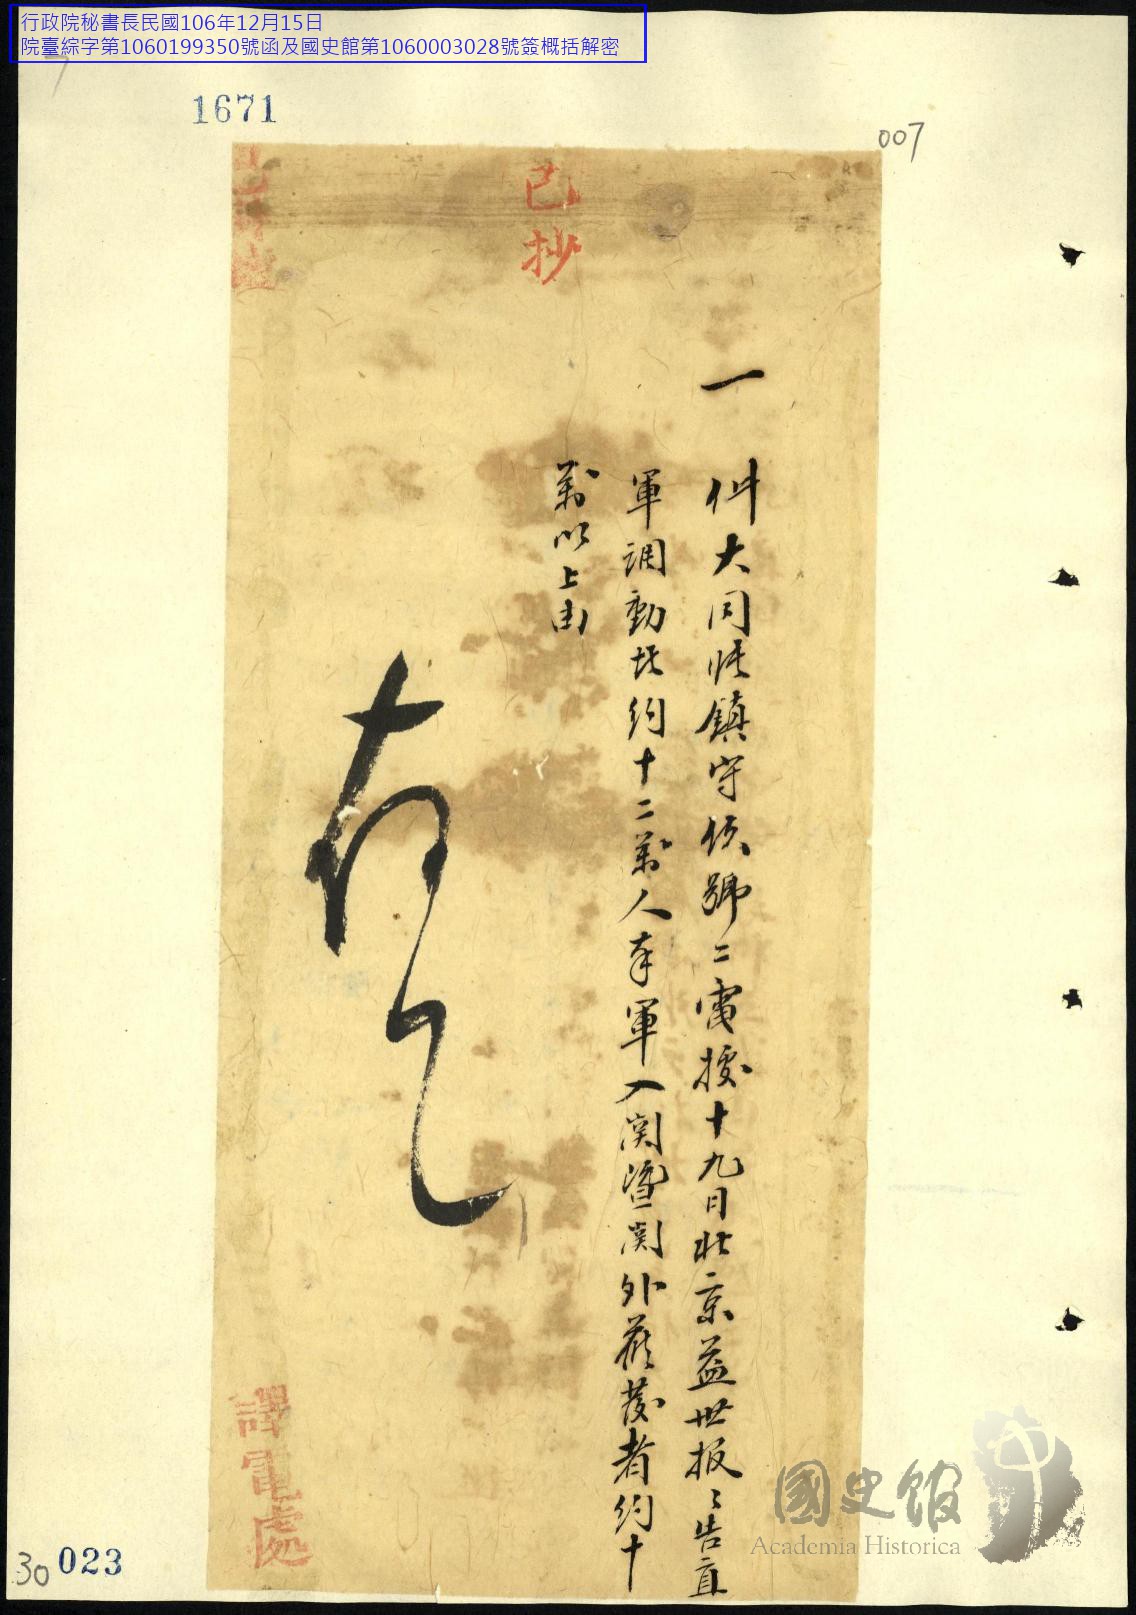 行政院秘書長民國106年12月15日
院臺綜字第1060199350號函及國史館第1060003028號簽概括解密
7
1671
007
已抄
一
件大同張鎮守使號二電據十九日北京益世报、告直
軍調動狀約十二萬人奉軍入関暨関外藏發者約十
萬以上由
存
譯電處
30 023
國史館
Academia Historica